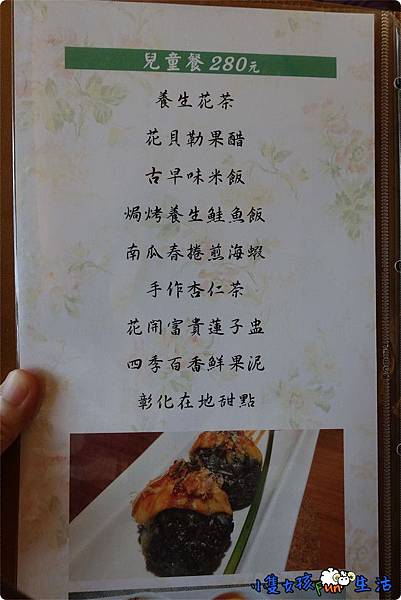 兒童餐280元
養生花茶
花貝勒果醋
古早味米飯
焗烤養生鮭魚飯
南瓜春捲煎海蝦
手作杏仁茶
花開富貴蓮子盅
四季百香鮮果泥
彰化在地甜點
小隻女孩Fun生活